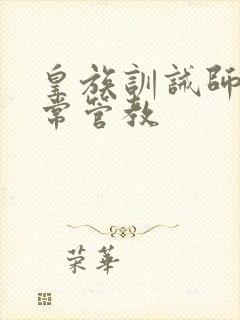 皇族訓誡師
常管教
荣華